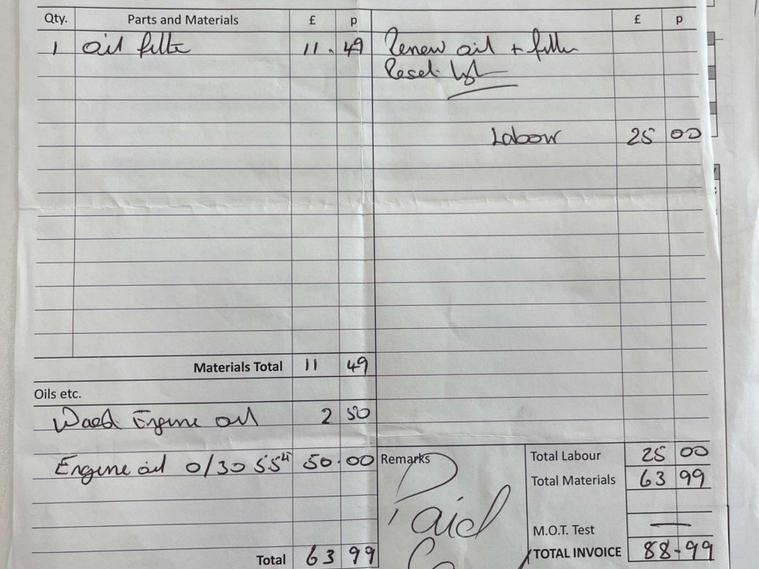 Qty. Parts and Materials £ p £ p
1 oil filter 11.49 Renew oil + filter
Reset light
Labour 25 00
Materials Total 11 49
Oils etc.
Waste Engine oil 2 50
Engine oil 0/30 50.00 Remarks Total Labour 25 00
Total Materials 63 99
Paid
M.O.T. Test —
Total 63 99 TOTAL INVOICE 88-99